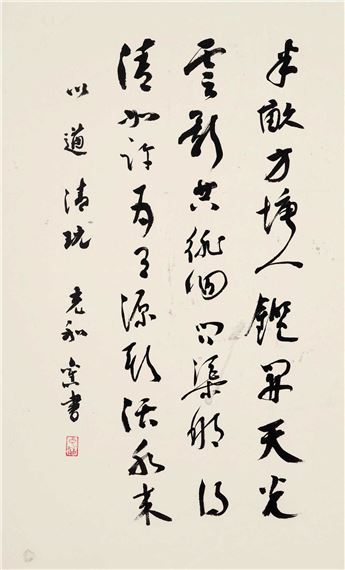 半畝方塘一鑑開天光
雲影共徘徊問渠那得
清如許為有源頭活水來
以 清玩 充和 書